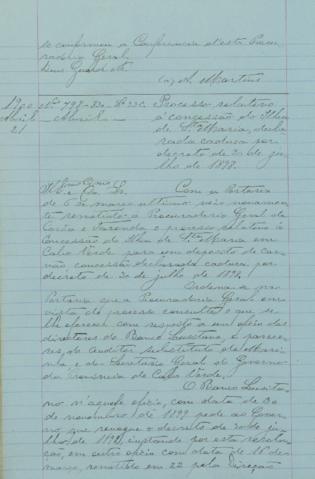 se conformou a Conferencia desta Procu-
radoria Geral.
Deus Guarde etc
(a) A. Martins
1900 Nº 798 - 33o - Processo relativo
Abril - Marinha - á concessão do Ilheu
21 de Sta Maria, decla
rada caduca por
decreto de 20 de ju-
lho de 1898.
Com a Portaria
de 6 de março ultimo veio novamen-
te remettido á Procuradoria Geral da
Corôa e Fazenda o processo relativo á
Concessão do Ilheu de Sta Maria em
Cabo Verde para um deposito de car-
vão, concessão declarada caduca por
decreto de 20 de julho de 1898.
Ordena a pre
Portaria que a Procuradoria Geral em
vista do processo consulte o que se
lhe offerecer com respeito a um officio dos
directores do Banco Lusitano, e parece-
res do auditor substituto da Mari-
nha e do Secretario Geral do Governo
da Provincia de Cabo Verde.
O Banco Lusita-
no n'aquelle officio, com data de 30
de novembro de 1899 pede ao Gover-
no que revogue o decreto de 20 de ju-
lho de 1898, instando por esta revoga-
ção em outro officio com data de 16 de
março, remettido em 22 pela Direcção